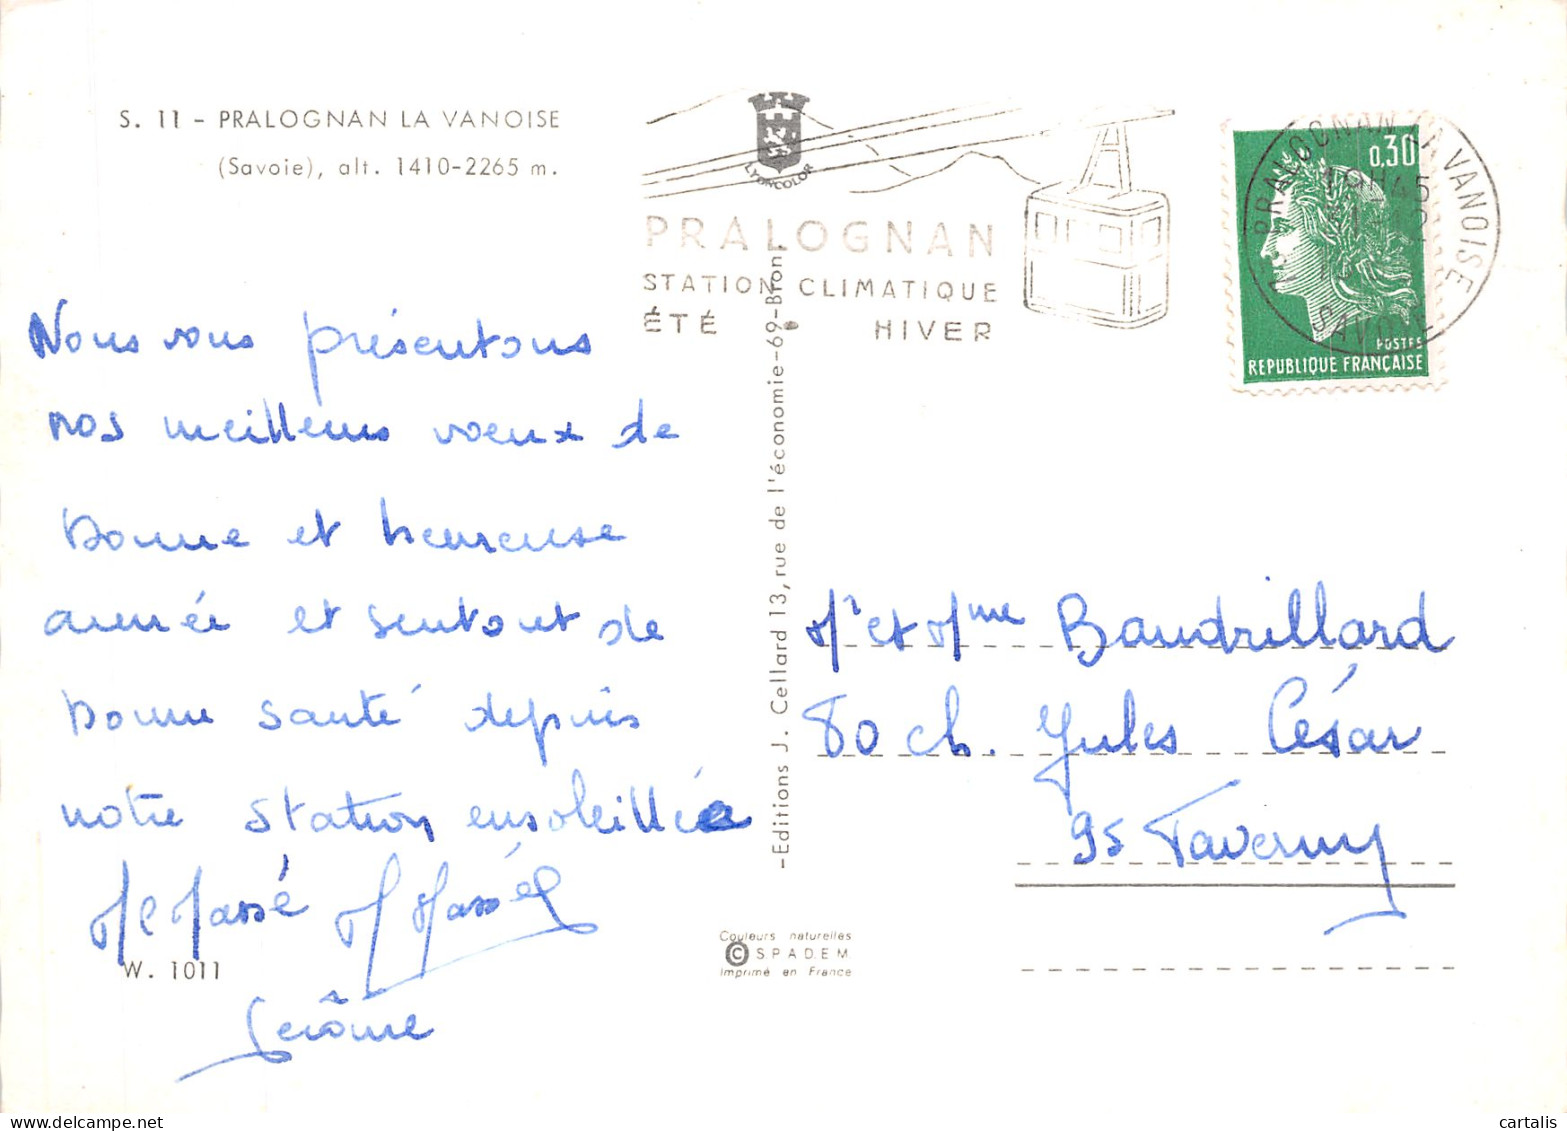 S. 11 - PRALOGNAN LA VANOISE
(Savoie), alt. 1410-2265 m.
LYONCOLOR
PRALOGNAN
STATION CLIMATIQUE
ÉTÉ • HIVER
PRALOGNAN LA VANOISE
19H45
SAVOIE
0,30
POSTES
REPUBLIQUE FRANÇAISE
Nous vous présentons
nos meilleurs voeux de
bonne et heureuse
année et surtout de
bonne santé depuis
notre station ensoleillée
Massé Massé
Jérôme
W. 1011
-Editions J. Cellard 13, rue de l'économie-69-Bron
Couleurs naturelles
© S.P.A.D.E.M
Imprimé en France
Mr et Mme Baudrillard
80 ch. Jules César
95 Taverny
cartalis
delcampe.net